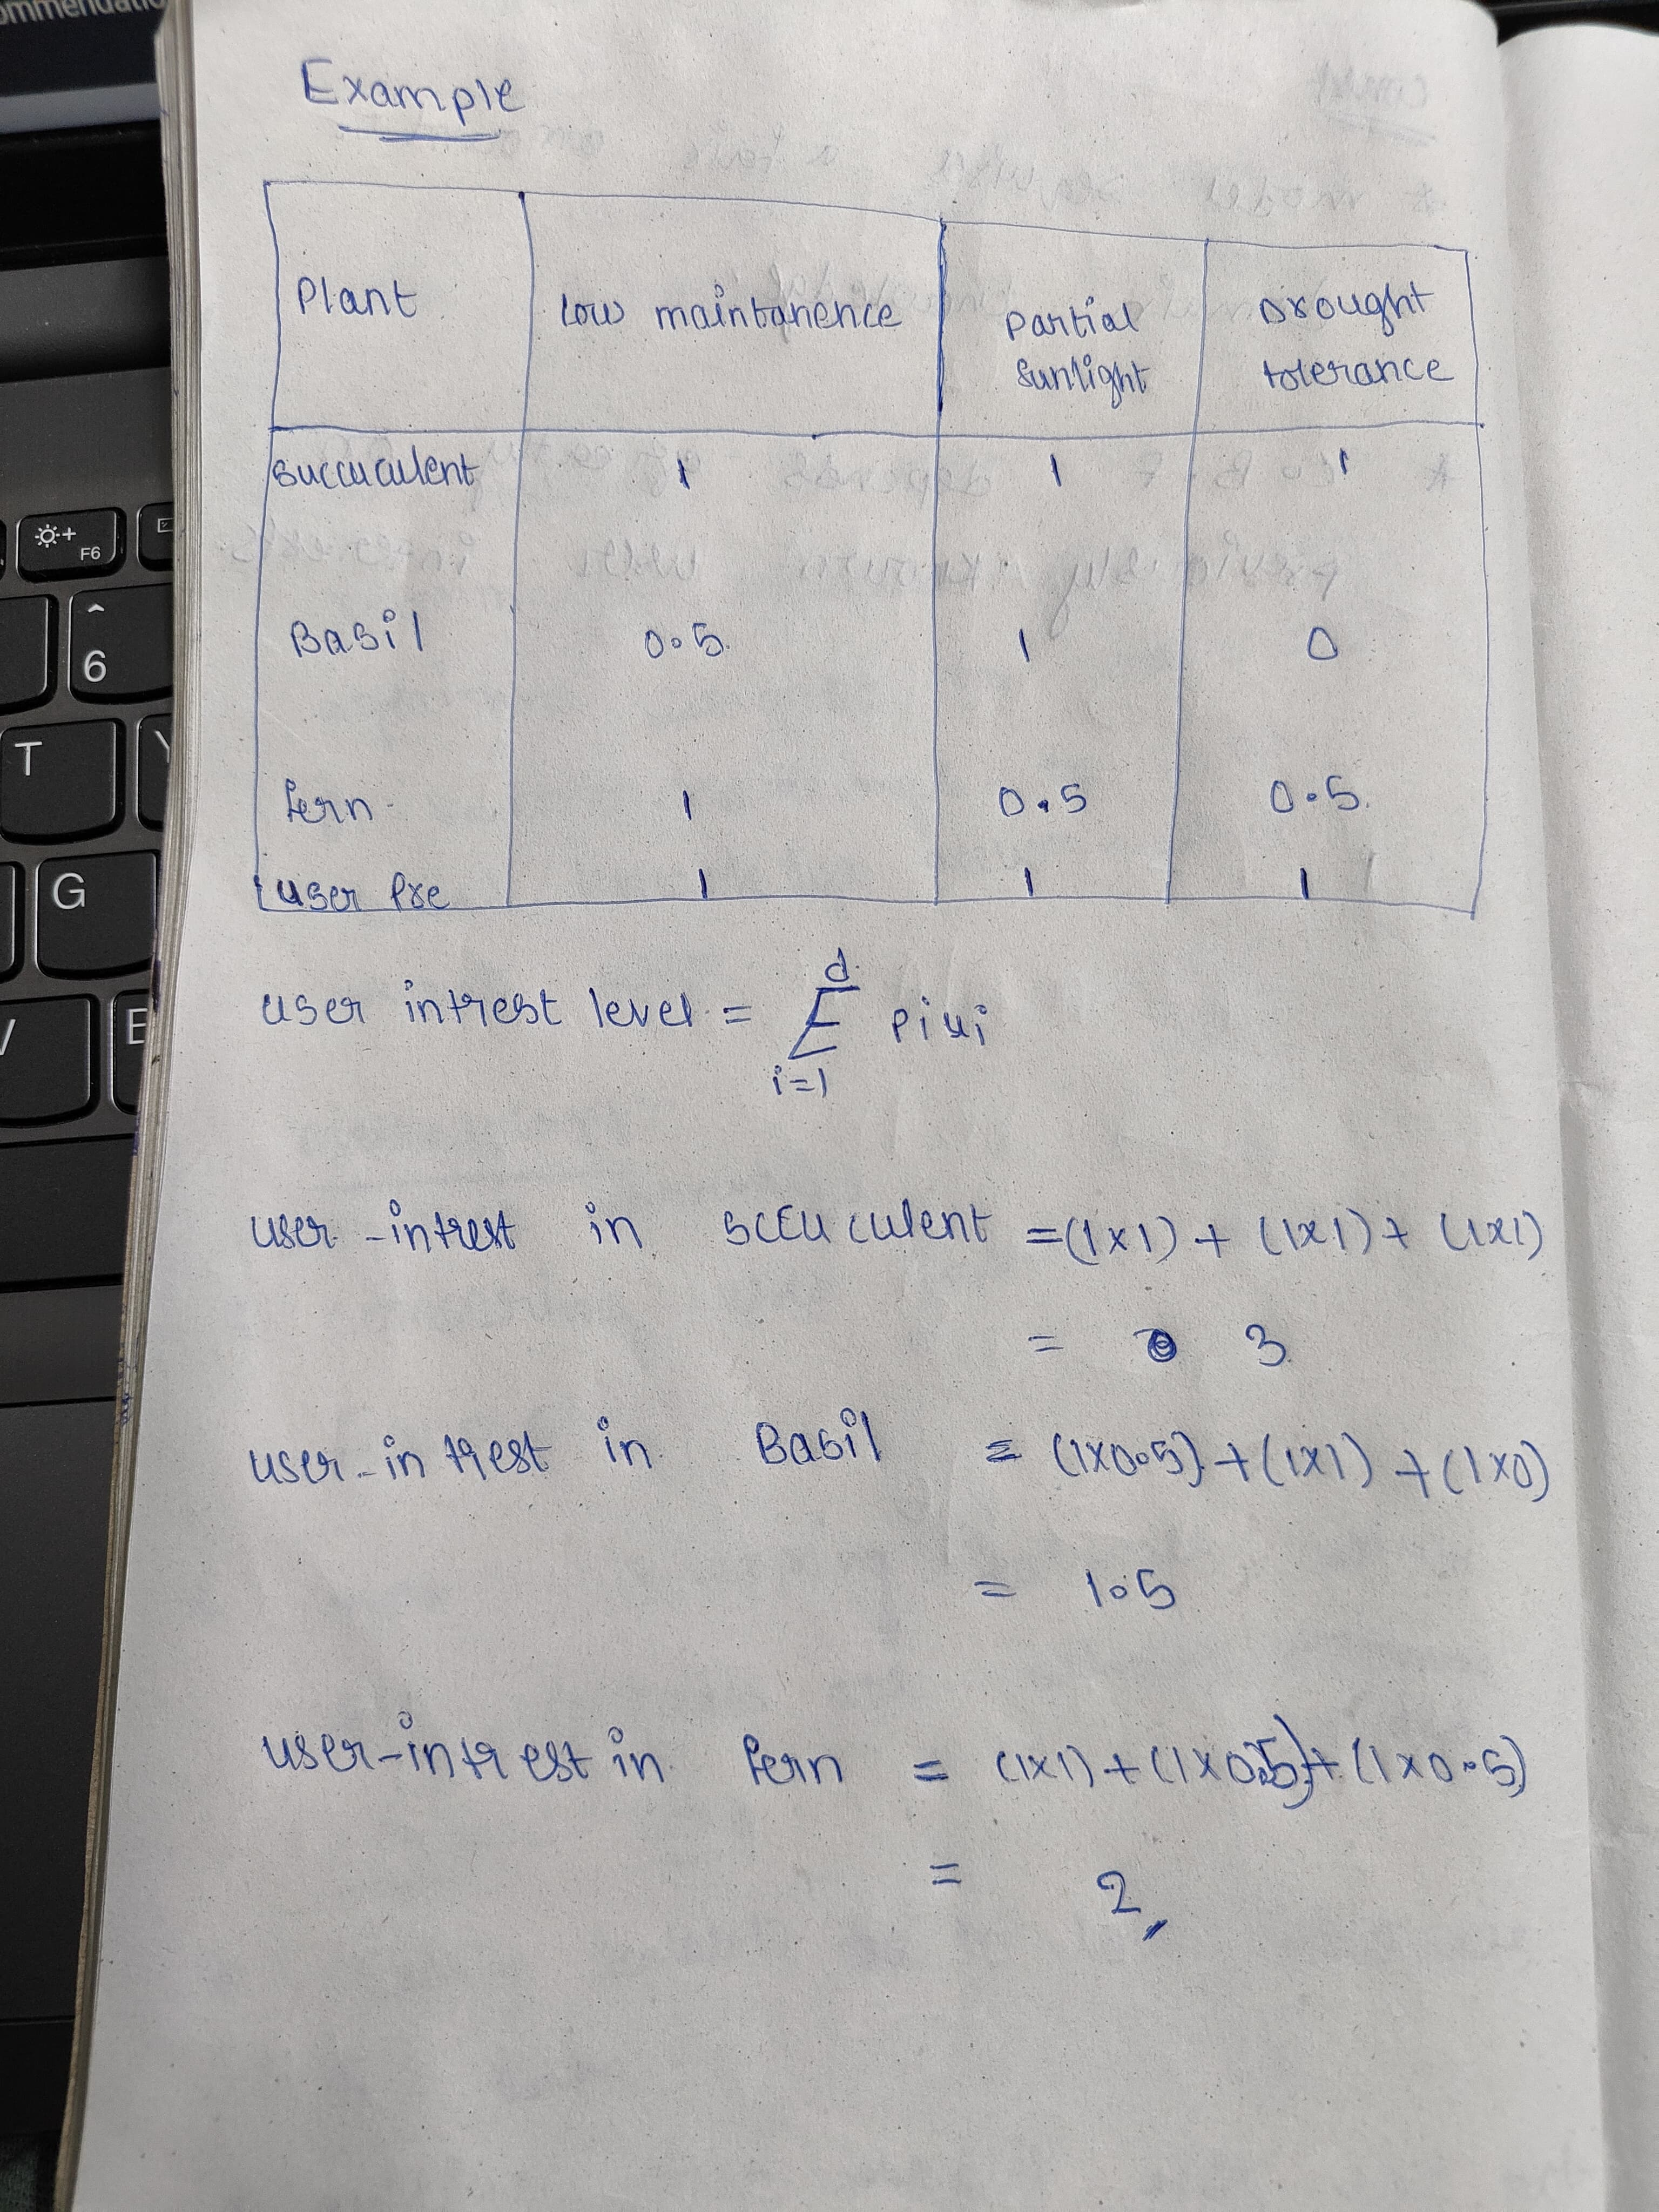 ommendatio
Example
Plant low maintanence Partial Sunlight Drought tolerance
succuculent 1 1 1
Basil 0.5 1 0
fern 1 0.5 0.5
user Pre 1 1 1
user intrest level = d Σ i=1 pi ui
user-intrest in sccuculent = (1x1) + (1x1) + (1x1)
= 3
user-intrest in Basil = (1x0.5) + (1x1) + (1x0)
= 1.5
user-intrest in fern = (1x1) + (1x0.5) + (1x0.5)
= 2
F6
^
6
T
Y
G
V
E